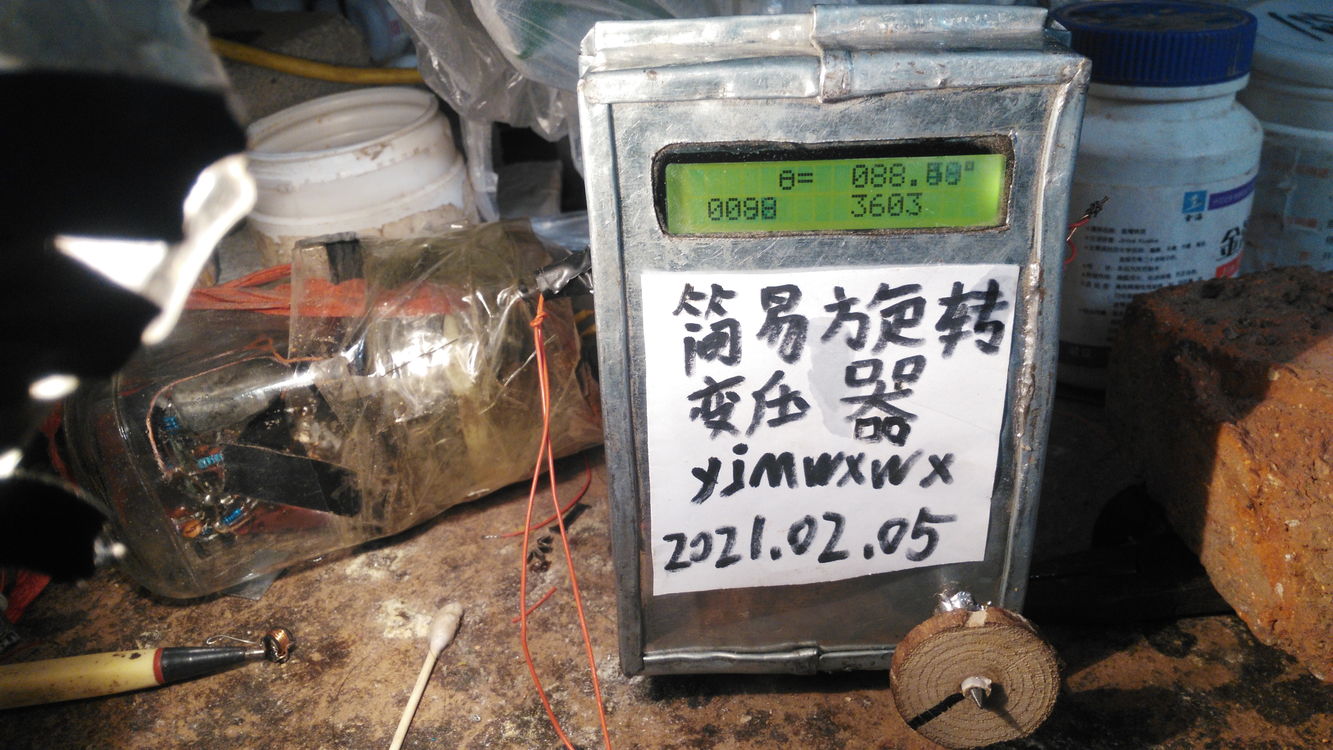 θ= 088.
0098 3603
简易旋转
变压器
yjmwxwx
2021.02.05